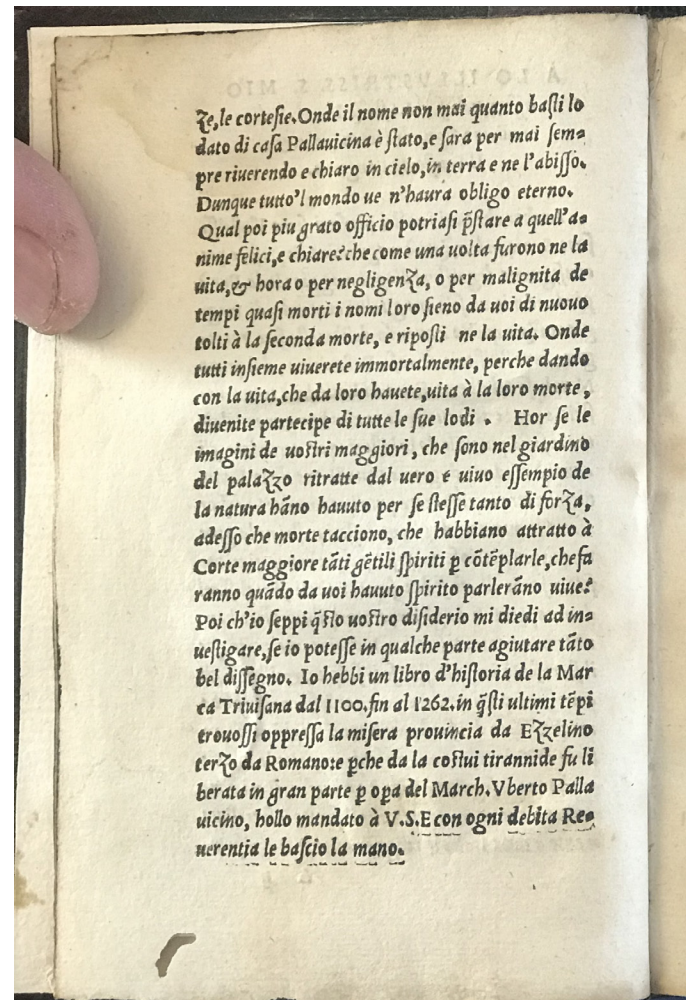 Ze,le cortesie.Onde il nome non mai quanto basti lo
dato di casa Pallauicina è stato,e sara per mai sem=
pre riuerendo e chiaro in cielo,in terra e ne l'abisso.
Dunque tutto'l mondo ue n'haura obligo eterno.
Qual poi piu grato officio potriasi p̄stare a quell'a=
nime felici,e chiare?che come una uolta furono ne la
uita,& hora o per negligenza, o per malignita de
tempi quasi morti i nomi loro sieno da uoi di nuouo
tolti à la seconda morte, e riposti ne la uita. Onde
tutti insieme uiuerete immortalmente, perche dando
con la uita,che da loro hauete,uita à la loro morte,
diuenite partecipe di tutte le sue lodi . Hor se le
imagini de uostri maggiori, che sono nel giardino
del palazzo ritratte dal uero e uiuo essempio de
la natura hāno hauuto per se stesse tanto di forza,
adesso che morte tacciono, che habbiano attratto à
Corte maggiore tāti gētili spiriti ꝑ cōtēplarle,che fa
ranno quādo da uoi hauuto spirito parlerāno uiue?
Poi ch'io seppi q̄sto uostro disiderio mi diedi ad in=
uestigare,se io potesse in qualche parte agiutare tāto
bel dissegno. Io hebbi un libro d'historia de la Mar
ca Triuisana dal 1100.fin al 1262.in q̄sti ultimi tēpi
trouossi oppressa la misera prouincia da Ezzelino
terzo da Romano:e ꝑche da la costui tirannide fu li
berata in gran parte ꝑ opa del March.Vberto Palla
uicino, hollo mandato à V.S.E con ogni debita Re=
uerentia le bascio la mano.